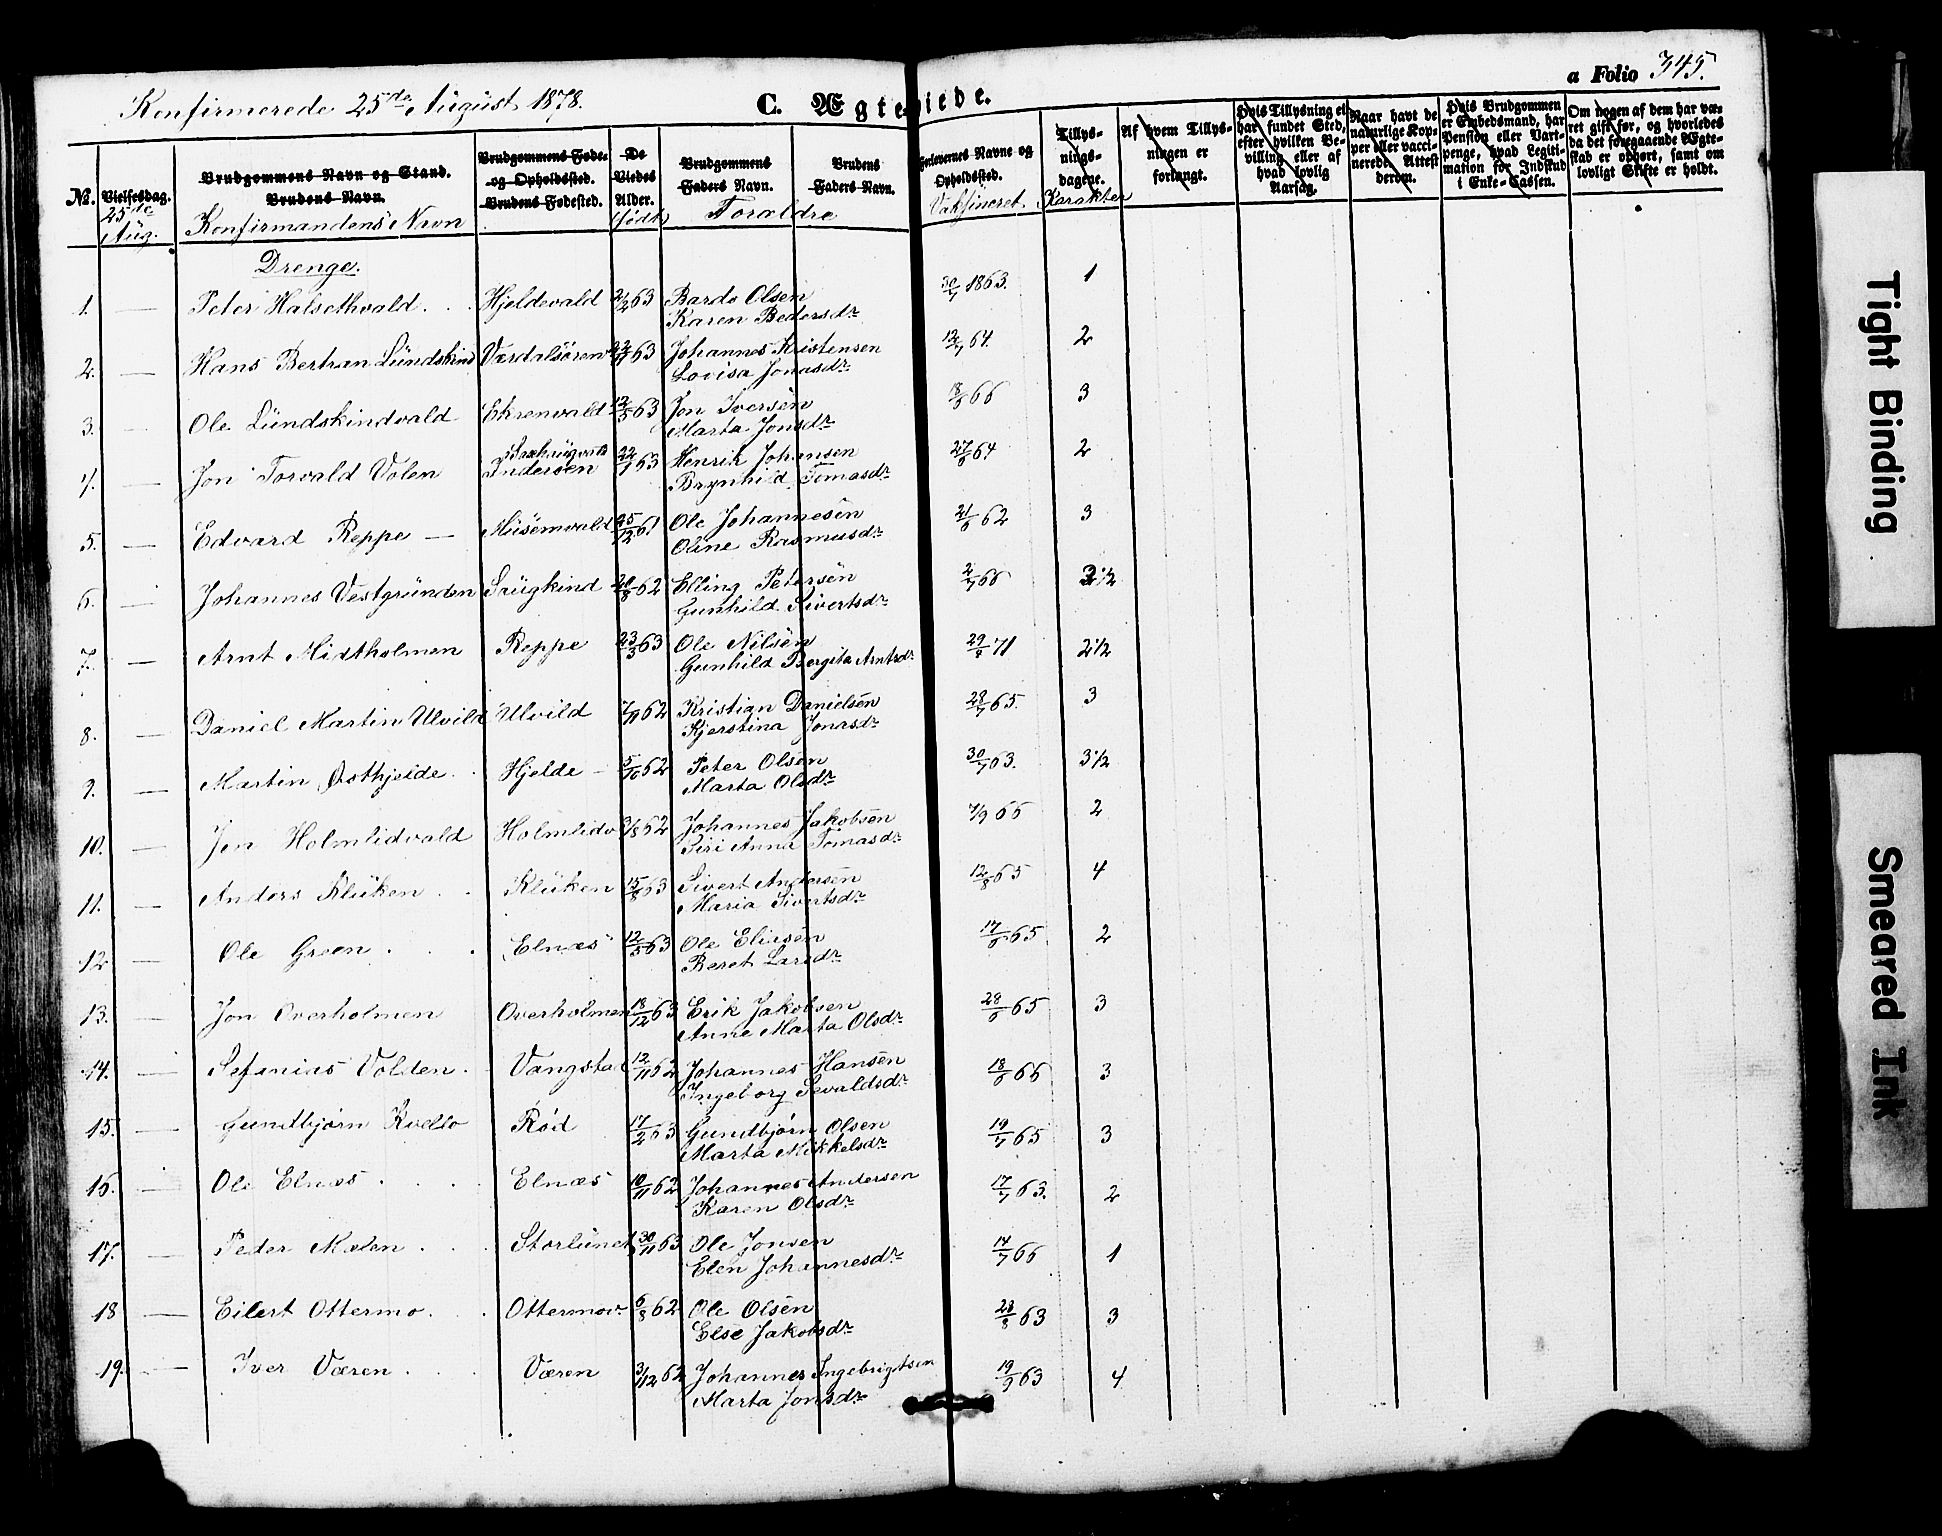 Konfirmerede 25de August 1878.
C. Ægteviede.
a Folio 345.
No.
Vielsesdag.
25de Aug.
Brudgommens Navn og Stand.
Brudens Navn.
Konfirmandens Navn
Brudgommens Føde- og Opholdssted.
Brudens Fødested.
De Viedes Alder.
født
Brudgommens Faders Navn.
Brudens Faders Navn.
Foraldre
Forlovernes Navne og Opholdssted.
Vaksineret.
Tillys-
nings-
dagene.
Karakter
Af hvem Tillys-
ningen er
forlangt.
Hvis Tillysning ei
har fundet Sted,
efter hvilken Be-
villing eller af
hvad lovlig
Aarsag.
Naar havt de
naturlige Kop-
per eller vacci-
nerede. Attest
derom.
Hvis Brudgommen
er Embedsmand, har
Pension eller Vart-
penge, hvad Legiti-
mation for Indskud
i Enke-Cassen.
Om nogen af dem har væ-
ret gift før, og hvorledes
da det foregaaende Ægte-
skab er ophørt, samt om
lovligt Skifte er holdt.
Drenge.
1. — Peter Halsethvald . . Hjeldevald 2/2 63 Bardo Olsen 30/7 1863. 1
Karen Pedersdr
2. — Hans Bertran Lundskind Værdalsøren 63 Johannes Kristensen 64. 2
Lovisa Jonasdr
3. — Ole Lundskindvald Ekrenvald 12/5 63 Jon Iversen 66 3
Marta Jonsdr
4. — Jon Torvald Volen Inderøen 63 Henrik Johansen 27/6 64 2
Brynhild Tomasdr
5. — Edvard Reppe — Musemvald 25/12 61 Ole Johannesen 21/6 62 3
Oline Rasmusdr
6. — Johannes Vestgrunden Saugkind 20/8 62 Elling Petersen 2/7 66 2 1/2
Gunhild Sivertsdr
7. — Arnt Midtholmen Reppe 23/3 63 Ole Nilsen 29/8 71 2 1/2
Gunhild Bergita Arntsdr
8. — Daniel Martin Ulvild Ulvild 7/11 62 Kristian Danielsen 28/7 65. 3
Kjerstina Jonasdr
9. — Martin Østhjelde . Hjelde — 5/10 62 Peter Olsen 30/7 63. 3 1/2
Marta Olsdr
10. — Jon Holmlidvald Holmlidv 3/8 62 Johannes Jakobsen 7/9 66 2
Siri Anna Tomasdr
11. — Anders Kluken . . Kluken 15/8 63 Sivert Andersen 12/8 65 4
Maria Sivertsdr
12 — Ole Green . . . Elnæs 12/5 63 Ole Eliasen 17/6 65. 2
Beret Larsdr
13. — Jon Overholmen Overholmen 18/12 63 Erik Jakobsen 28/6 65 3
Anne Marta Olsdr
14. — Sefanias Volden . Vangstad 12/11 62 Johannes Hansen 18/6 66 3
Ingeborg Sevaldsdr
15. — Gundbjørn Kvello Rød 17/2 63 Gundbjørn Olsen 19/7 65 3
Marta Mikkelsdr
16. — Ole Elnæs . . . Elnæs 10/11 62 Johannes Andersen 17/7 63. 2
Karen Olsdr
17. — Peder Molen . . . Storlunet 30/11 63 Ole Jonsen 14/7 66 1
Elen Johannesdr
18 — Eilert Ottermo . . Ottermov. 6/8 62 Ole Olsen 28/8 63 3
Else Jakobsdr
19. — Iver Væren . . . Væren 3/12 62 Johannes Ingebrigtsen 19/9 63 4
Marta Jonsdr
Tight Binding
Smeared Ink